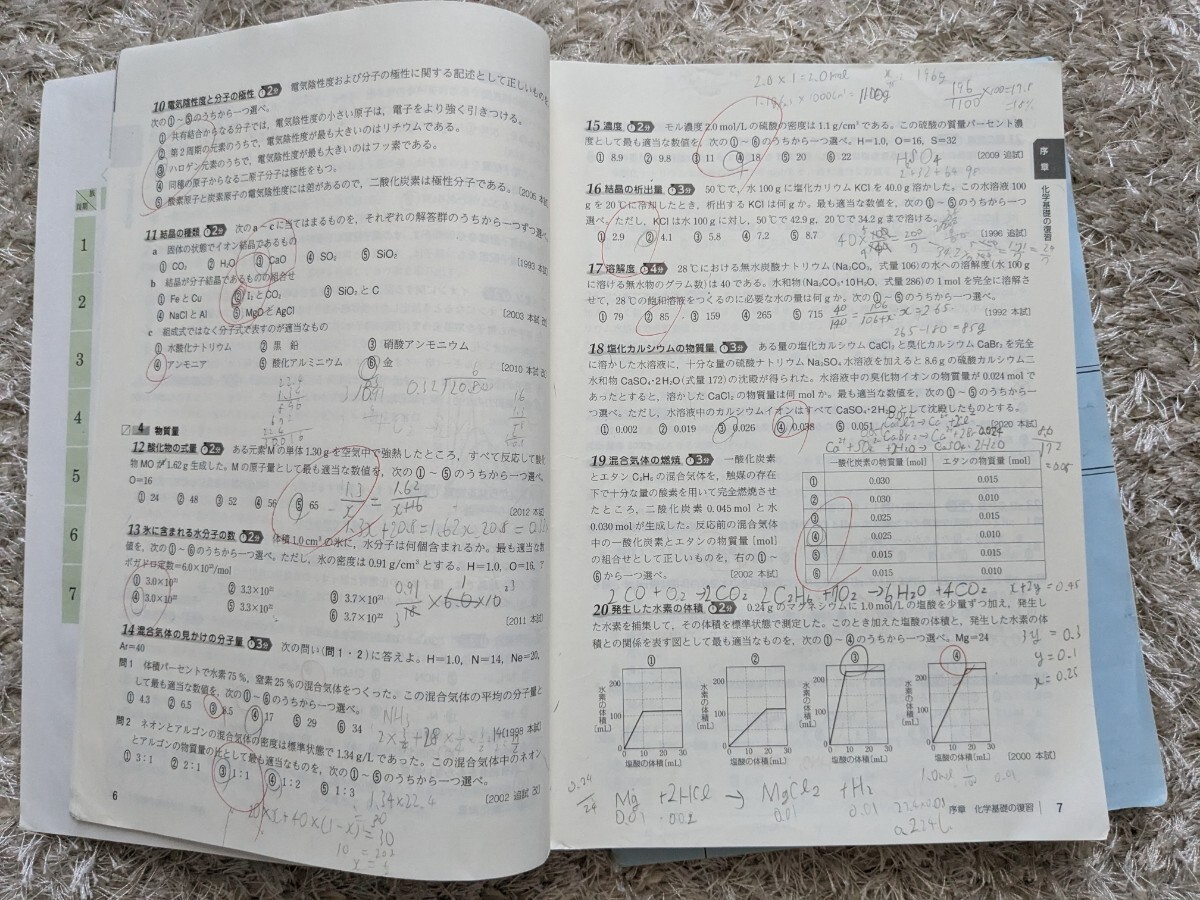 10 電気陰性度と分子の極性 2分 電気陰性度および分子の極性に関する記述として正しいものを
次の①～⑤のうちから一つ選べ。
① 共有結合からなる分子では,電気陰性度の小さい原子は,電子をより強く引きつける。
② 第2周期の元素のうちで,電気陰性度が最も大きいのはリチウムである。
③ ハロゲン元素のうちで,電気陰性度が最も大きいのはフッ素である。
④ 同種の原子からなる二原子分子は極性をもつ。
⑤ 酸素原子と炭素原子の電気陰性度には差があるので,二酸化炭素は極性分子である。
11 結晶の種類 2分 次のa～cに当てはまるものを,それぞれの解答群のうちから一つずつ選べ
a 固体の状態でイオン結晶であるもの
① CO₂ ② H₂O ③ CaO ④ SO₂ ⑤ SiO₂
[1993 本試]
b 結晶が分子結晶であるものの組合せ
① FeとCu ② I₂とCO₂ ③ SiO₂とC
④ NaClとAl ⑤ MgOとAgCl
[2003 本試 改]
c 組成式ではなく分子式で表すのが適当なもの
① 水酸化ナトリウム ② 黒鉛 ③ 硝酸アンモニウム
④ アンモニア ⑤ 酸化アルミニウム ⑥ 金
[2010 本試 改]
4 物質量
12 酸化物の式量 2分 ある元素Mの単体1.30gを空気中で強熱したところ,すべて反応して酸化
物MOが1.62g生成した。Mの原子量として最も適当な数値を,次の①～⑤のうちから一つ選べ。
O=16
① 24 ② 48 ③ 52 ④ 56 ⑤ 65
[2012 本試]
1.3/x = 1.62/x+16
1.3x+20.8=1.62x
13 氷に含まれる水分子の数 2分 体積1.0cm³の氷に,水分子は何個含まれるか。最も適当な数
値を,次の①～⑥のうちから一つ選べ。ただし,氷の密度は0.91g/cm³とする。H=1.0, O=16,
ボガドロ定数=6.0×10²³/mol
① 3.0×10²¹ ② 3.3×10²¹ ③ 3.7×10²¹
④ 3.0×10²² ⑤ 3.3×10²² ⑥ 3.7×10²²
[2011 本試]
14 混合気体の見かけの分子量 3分 次の問い(問1・2)に答えよ。H=1.0, N=14, Ne=20,
Ar=40
問1 体積パーセントで水素75%,窒素25%の混合気体をつくった。この混合気体の平均の分子量と
して最も適当な数値を,次の①～⑥のうちから一つ選べ。
① 4.3 ② 6.5 ③ 8.5 ④ 17 ⑤ 29 ⑥ 34
[1998 本試]
NH₃
問2 ネオンとアルゴンの混合気体の密度は標準状態で1.34g/Lであった。この混合気体中のネオン
とアルゴンの物質量の比として最も適当な数値を,次の①～⑤のうちから一つ選べ。
① 3:1 ② 2:1 ③ 1:1 ④ 1:2 ⑤ 1:3
[2002 追試 改]
1.34×22.4
6
2.0×1=2.0mol
196g
196/1100 ×100=17.8
15 濃度 2分 モル濃度2.0mol/Lの硫酸の密度は1.1g/cm³である。この硫酸の質量パーセント濃
度として最も適当な数値を,次の①～⑥のうちから一つ選べ。H=1.0, O=16, S=32
① 8.9 ② 9.8 ③ 11 ④ 18 ⑤ 20 ⑥ 22
[2009 追試]
16 結晶の析出量 3分 50℃で,水100gに塩化カリウムKClを40.0g溶かした。この水溶液100
gを20℃に冷却したとき,析出するKClは何gか。最も適当な数値を,次の①～⑤のうちから一つ
選べ。ただし,KClは水100gに対し,50℃で42.9g,20℃で34.2gまで溶ける。
① 2.9 ② 4.1 ③ 5.8 ④ 7.2 ⑤ 8.7
[1996 追試]
17 溶解度 4分 28℃における無水炭酸ナトリウム(Na₂CO₃,式量106)の水への溶解度(水100g
に溶ける無水物のグラム数)は40である。水和物(Na₂CO₃・10H₂O,式量286)の1molを完全に溶解さ
せて,28℃の飽和溶液をつくるのに必要な水の量は何gか。次の①～⑤のうちから一つ選べ。
① 79 ② 85 ③ 159 ④ 265 ⑤ 715
[1992 本試]
40/140 = 106/106+x x=265
265-180=85g
18 塩化カルシウムの物質量 3分 ある量の塩化カルシウムCaCl₂と臭化カルシウムCaBr₂を完全
に溶かした水溶液に,十分な量の硫酸ナトリウムNa₂SO₄水溶液を加えると8.6gの硫酸カルシウム二
水和物CaSO₄・2H₂O(式量172)の沈殿が得られた。水溶液中の臭化物イオンの物質量が0.024molで
あったとすると,溶かしたCaCl₂の物質量は何molか。最も適当な数値を,次の①～⑤のうちから一
つ選べ。ただし,水溶液中のカルシウムイオンはすべてCaSO₄・2H₂Oとして沈殿したものとする。
① 0.002 ② 0.019 ③ 0.026 ④ 0.038 ⑤ 0.051
[2020 本試]
19 混合気体の燃焼 3分 一酸化炭素
とエタンC₂H₆の混合気体を,触媒の存在
下で十分な量の酸素を用いて完全燃焼させ
たところ,二酸化炭素0.045molと水
0.030molが生成した。反応前の混合気体
中の一酸化炭素とエタンの物質量[mol]
の組合せとして正しいものを,右の①～
⑥から一つ選べ。
[2002 本試]
一酸化炭素の物質量[mol] エタンの物質量[mol]
① 0.030 0.015
② 0.030 0.010
③ 0.025 0.015
④ 0.025 0.010
⑤ 0.015 0.015
⑥ 0.015 0.010
2CO+O₂→2CO₂ 2C₂H₆+7O₂→6H₂O+4CO₂
x+2y=0.45
3y=0.3
y=0.1
x=0.25
20 発生した水素の体積 2分 0.24gのマグネシウムに1.0mol/Lの塩酸を少量ずつ加え,発生し
た水素を捕集して,その体積を標準状態で測定した。このとき加えた塩酸の体積と,発生した水素の体
積との関係を表す図として最も適当なものを,次の①～④のうちから一つ選べ。Mg=24
① ② ③ ④
水素の体積[mL] 200 100 0 10 20 30 塩酸の体積[mL]
水素の体積[mL] 200 100 0 10 20 30 塩酸の体積[mL]
水素の体積[mL] 200 100 0 10 20 30 塩酸の体積[mL]
水素の体積[mL] 200 100 0 10 20 30 塩酸の体積[mL]
[2000 本試]
0.24/24 Mg+2HCl→MgCl₂+H₂
0.01 0.02 0.01 0.01
序章 化学基礎の復習 7
序章
化学基礎の復習
1
2
3
4
5
6
7